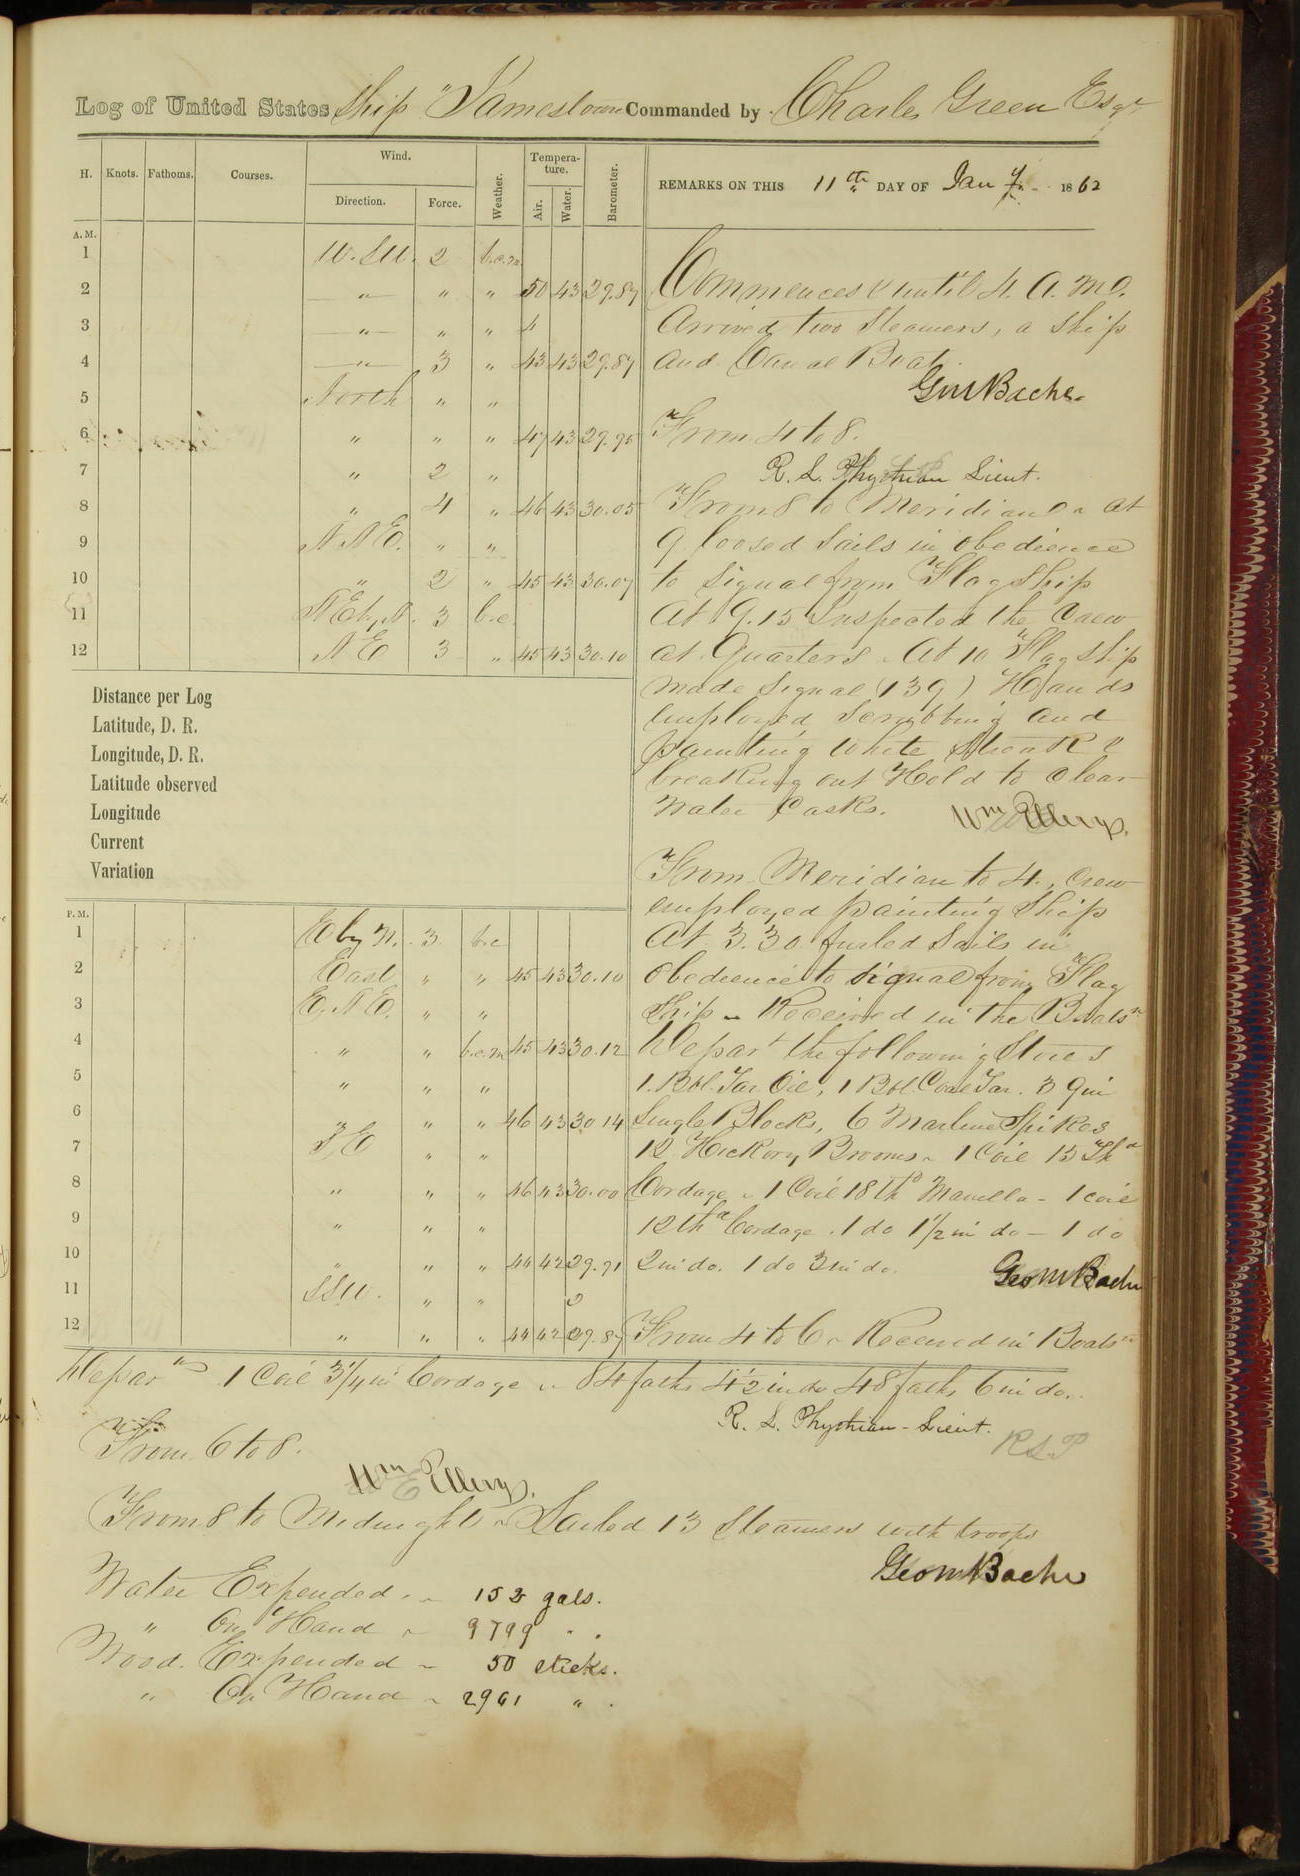 Log of United States Ship "Jamestown Commanded by Charles Green Esqr
H. Knots. Fathoms. Courses. Wind. Direction. Force. Weather. Tempera-ture. Air. Water. Barometer. REMARKS ON THIS 11th DAY OF Jany 1862
A.M.
1 W.SW. 2 b.c.m
2 " " " 50 43 29.87 Commences & until 4. A.M.
3 " " " Arrived two Steamers, a Ship
4 " 3 " 43 43 29.87 and Canal Boat.
5 North " " Geo M Bache
6 " " " 47 43 29.95 From 4 to 8.
7 " 2 " R. L. Phythian Lieut.
8 " 4 " 46 43 30.05 From 8 to Meridian at
9 NNE. " " 9 loosed Sails in obedience
10 " 2 " 45 43 30.07 to Signal from Flag Ship
11 NEbyN. 3 b.c. At 9.15 Inspected the Crew
12 NE 3 " 45 43 30.10 at Quarters. At 10 Flag Ship
made Signal (139) Hands
Distance per Log
employed Scrubbing and
Latitude, D. R.
painting White Streak &
Longitude, D. R.
breaking out Hold to clear
Latitude observed
Water Casks. Wm E Ellery.
Longitude
Current
Variation
From Meridian to 4, Crew
employed painting Ship
P.M.
1 EbyN. 3 b.c At 3.30 furled Sails in
2 East " " 45 43 30.10 obedience to signal from Flag
3 E.NE. " " Ship Received in the Boatsn
4 " " b.c.m 45 43 30.12 Depart the following Stores
5 " " " 1 Bbl. Tar Oil, 1 Bbl Coal Tar. 3 9 in
6 " " " 46 43 30 14 Single Blocks, 6 Marline Spikes
7 " " 12 Hickory Brooms 1 Coil 15 Thd
8 " " " 46 43 30.00 Cordage 1 Coil 18 thd Manilla - 1 coil
9 " " " 12 thd Cordage. 1 do 1 1/2 in do - 1 do
10 " " " 44 42 29.91 2 in do. 1 do 3 in do. Geo M Bache
11 SSW. " "
12 " " " 44 42 29.87 From 4 to 6 Received in Boatsn
Depar 1 Coil 3 1/4 in Cordage 84 faths 4 1/2 in do 48 faths 6 in do.
R. L. Phythian - Lieut.
RLP
From 6 to 8.
Wm E Ellery.
From 8 to Midnight Sailed 13 Steamers with troops
Geo M Bache
Water Expended 152 gals.
" On Hand 9799 "
Wood. Expended 50 sticks.
" On Hand 2961 "